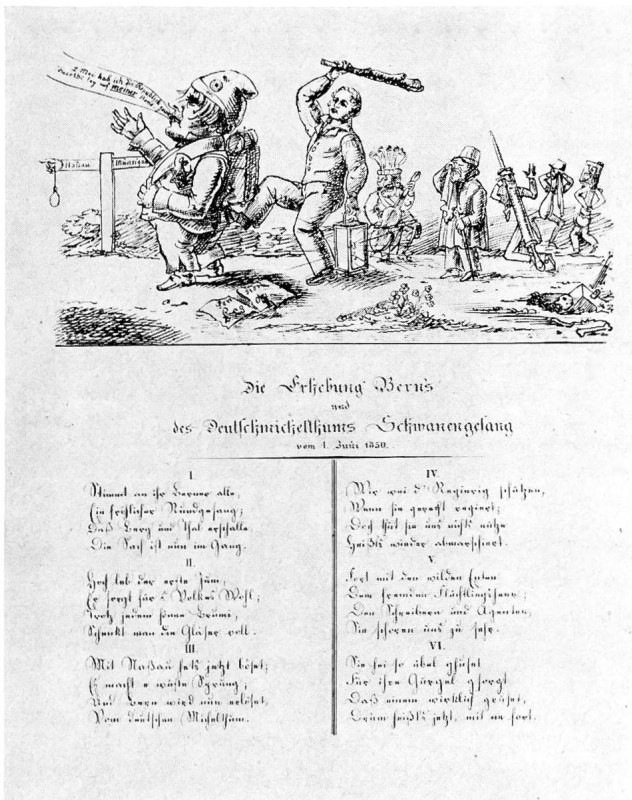 2 Mal hab ich die Republik
lag auf meiner
Naßau
Die Erhebung Bern's
und
des Deutschmichelthums Schwanengesang
vom 1. Juni 1850.
I.
Stimmet an ihr Berner alle,
Ein festlicher Rundgesang;
Daß Berg und Thal erschalle
Die Sach ist nun im Gang.
II.
Hoch leb der erste Juni,
Er sorgt für's Volkes Wohl;
Trotz jedem Brumi,
Schenkt man die Gläser voll.
III.
Mit Naßau jetzt böset;
E macht e wüste Sprüng;
Und Bern wird nun erlöset,
Vom deutschen Michelthum.
IV.
Mir wei d'Regierig schätzen,
Wenn sie gerecht regiert;
Doch thut sie uns nicht nütze
Heißts wieder abmarschiert.
V.
Fort mit den wilden Enten
Dem fremden Flüchtlingsheer;
Den Schreibern und Agenten,
Sie scheren uns zu sehr.
VI.
Sie hei so übel ghuset
Für ihre Gurgel gsorgt
Daß einem wirklich gruset,
Drum heißts jetzt, mit ne fort.